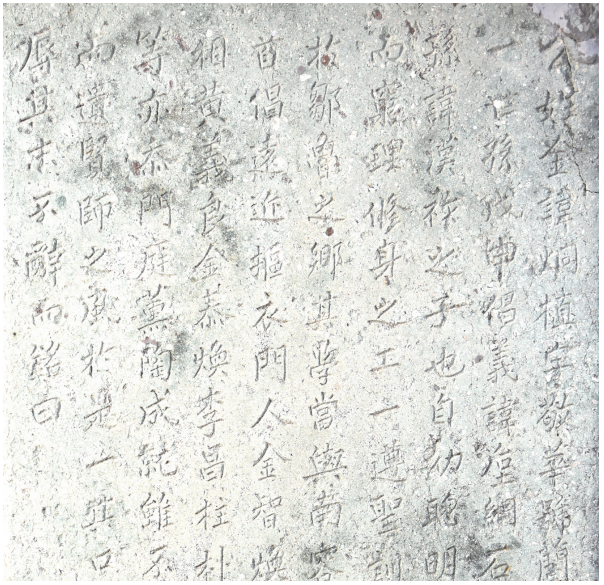 公姓金諱炯植字敬華號蘭
一世孫戊申倡義諱濯綱石
孫諱漢祚之子也自幼聰明
而窮理修身之工一遵聖訓
於鄒魯之鄉其學當與南
首倡遠近摳衣門人金智煥
相黃義良金恭煥李昌柱朴
等亦忝門庭薰陶成就雖不
而遺賢師之風於是一
辱其末不辭而銘曰